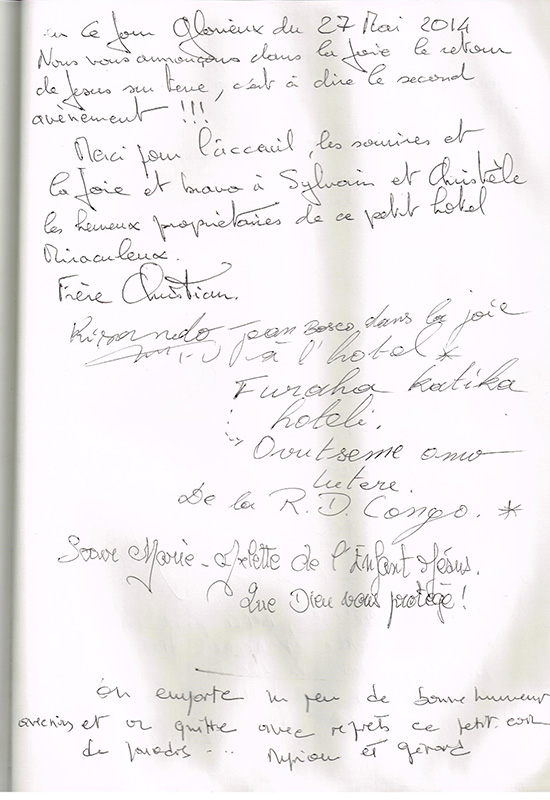 en Ce Jour Glorieux du 27 Mai 2014
Nous vous annonçons dans la joie le retour
de Jésus sur terre, c'est à dire le second
avènement !!!
Merci pour l'accueil, les sourires et
la Joie et bravo à Sylvain et Christèle
les heureux propriétaires de ce petit hôtel
Miraculeux.
Frère Christian.
Jean Bosco, dans la joie
à l'hotel *
Furaha katika
hoteli.
De la R. D. Congo. *
Soeur Marie-Arlette de l'Enfant Jésus.
Que Dieu vous protège !
On emporte un peu de bonne humeur
avec nous et on quitte avec regrets ce petit coin
de paradis ... Myriam et Gérard